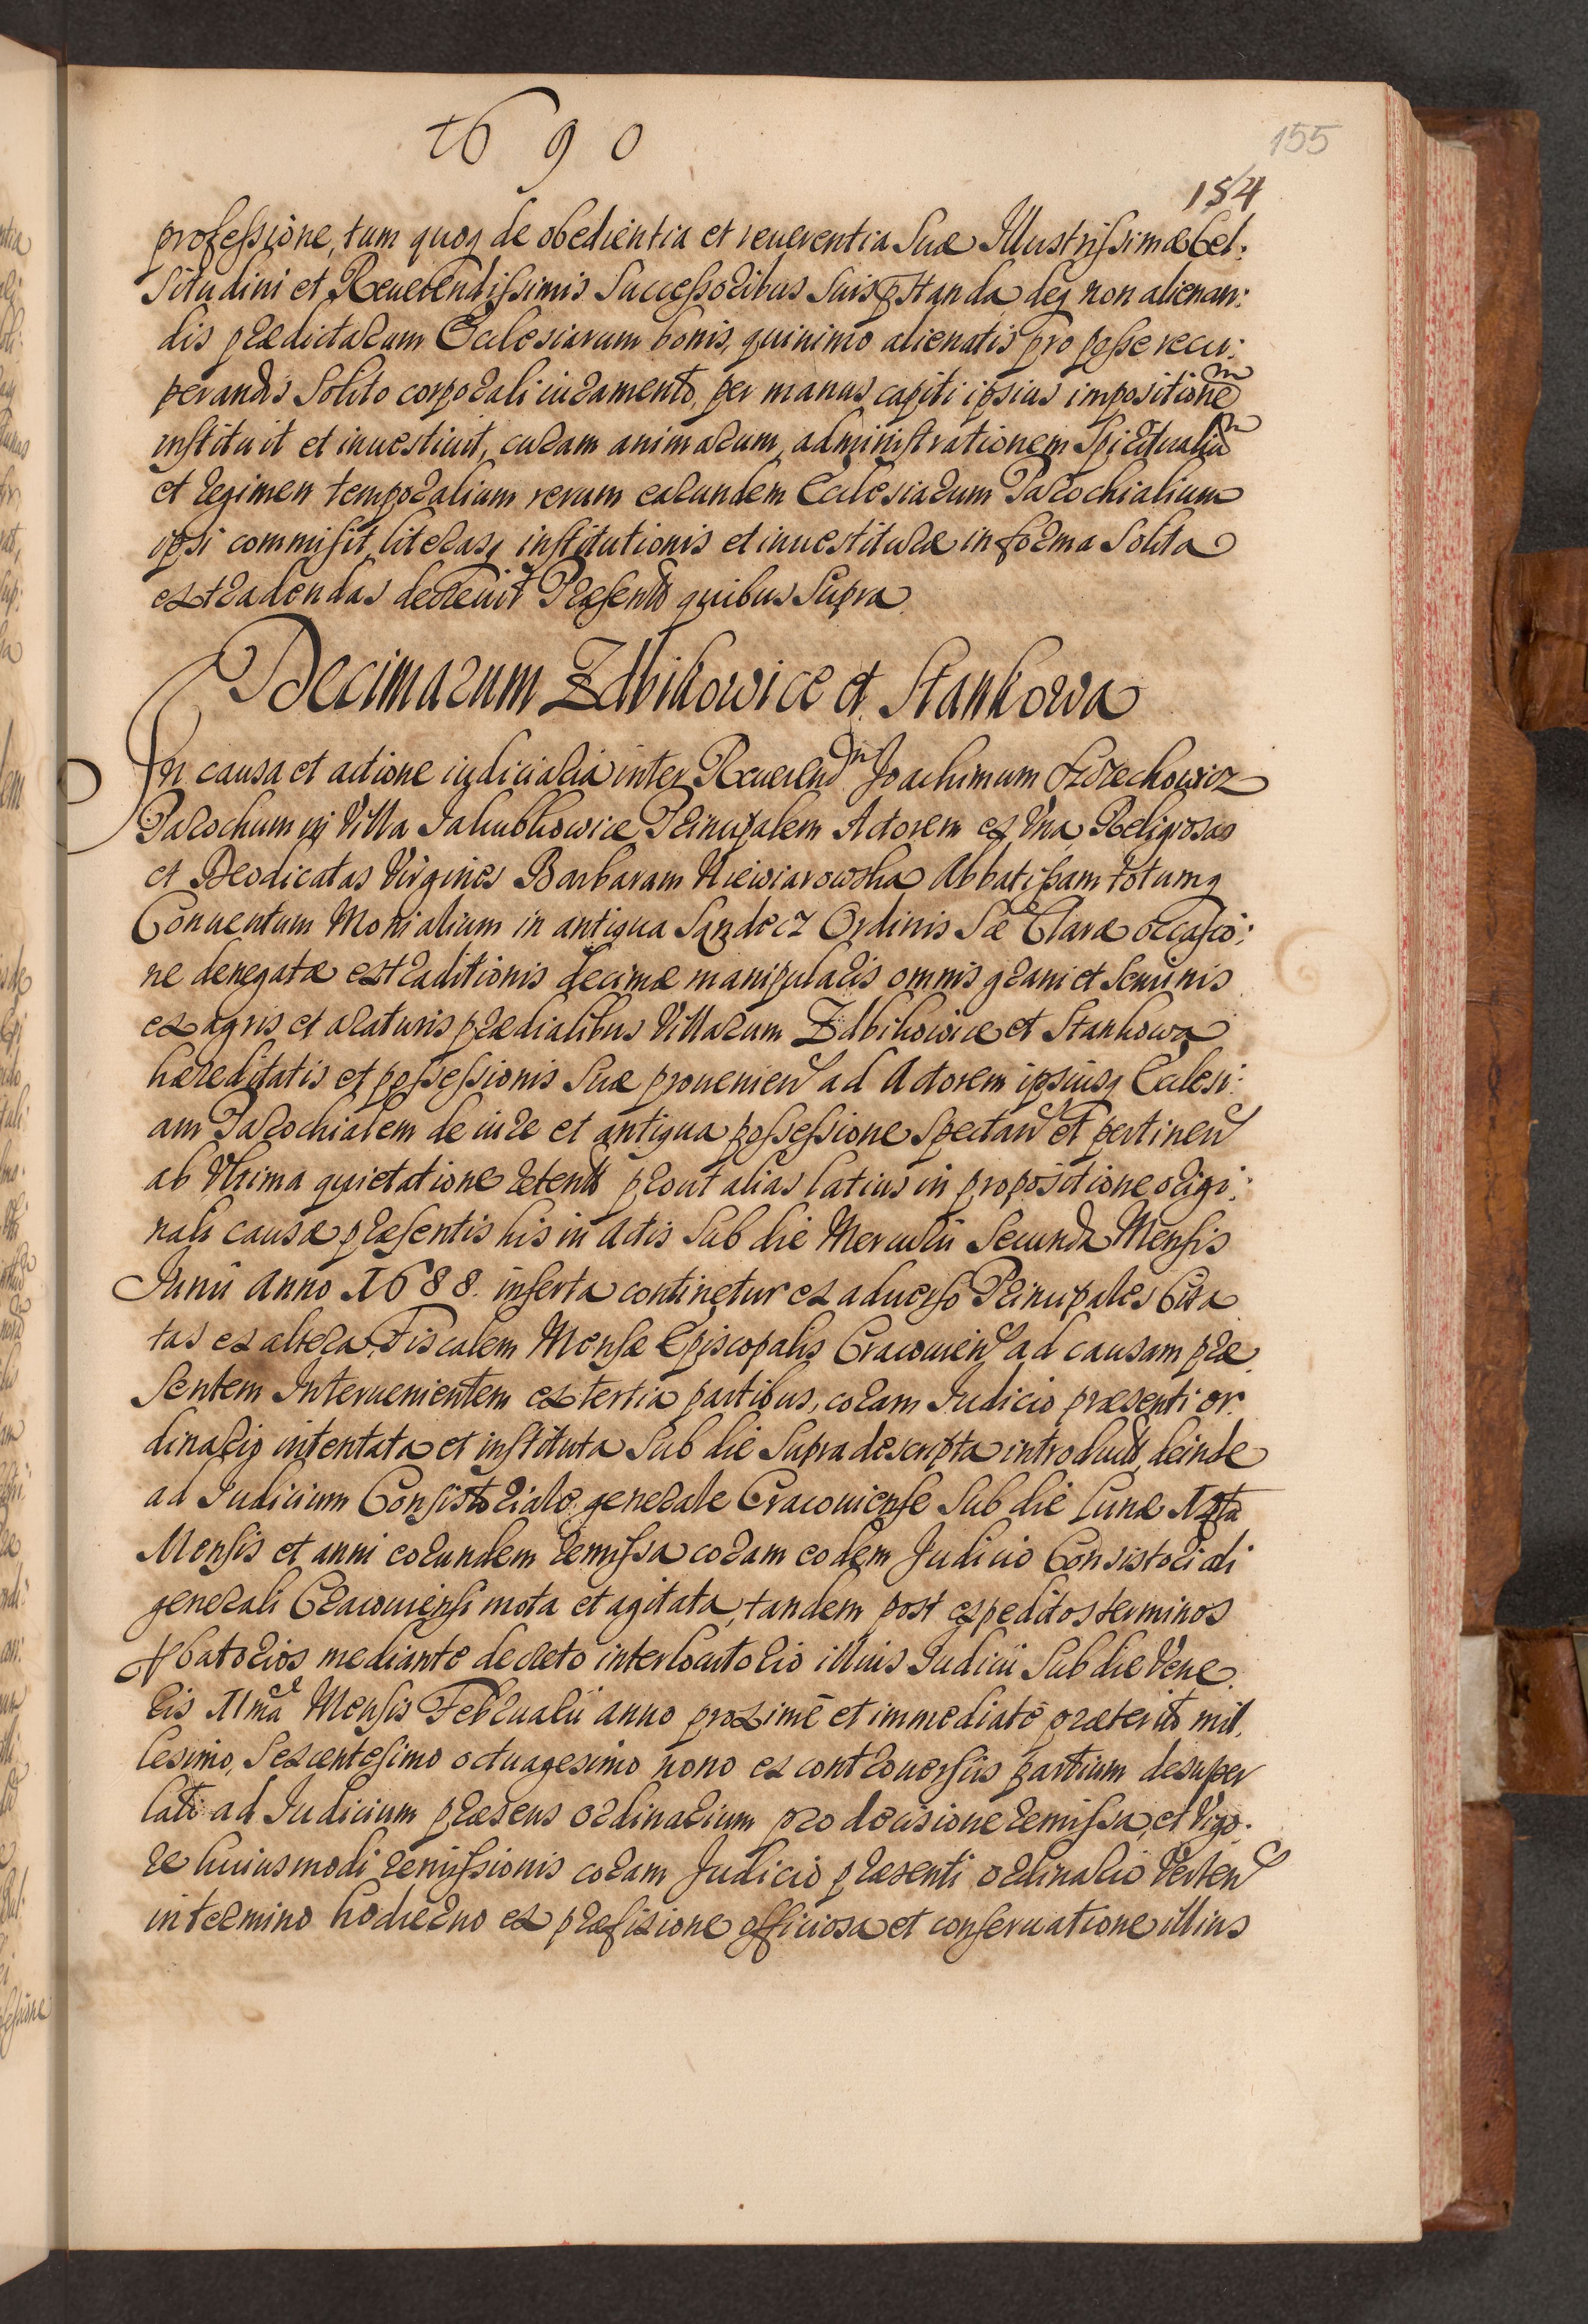 1690
155
154
professione, tum quoq de obedientia et reuerentia Suæ Illustrissimæ Cel:
situdini et Reuerendissimis Successoribus Suis pstanda, deq non alienan:
dis prædictarum Ecclesiarum bonis, quinimo alienatis pro posse recu:
perandis Solito corporali iuramento, per manus capiti ipsius impositionem
instituit et inuestiuit, curam animarum, administrationem Spiritualium
et regimen temporalium rerum earundem Ecclesiarum Parochialium
ipsi commisit, literasq institutionis et inuestituræ in forma Solita
extradendas decreuit Præsentt quibus Supra
Decimarum Zdbikowice et Stankowa
In causa et actione iudiciaria inter Reuerendm Joachimum Orzechowicz
Parochum in Villa Jakubkowice Principalem Actorem ex Una, Religiosas
et Deodicatas Virgines Barbaram Niewiarowska Abbatissam totumq
Conuentum Monialium in antiqua Sandecz Ordinis Sæ Claræ occasio:
ne denegatæ extraditionis decimæ manipularis omnis grani et Seminis
ex agris et araturis prædialibus Villarum Zdbikowice et Stankowa
hæreditatis et possessionis Suæ prouenien ad Actorem ipsiusq Ecclesi:
am Parochialem de iure et antiqua possessione Spectan et pertinen
ab Ultima quietatione retentt prout alias latius in propositione origi:
nali causæ præsentis his in Actis Sub die Mercurii Secunda Mensis
Junii anno 1688. inserta continetur ex aduerso Principales Cita
tas ex altera, Fiscalem Mensæ Episcopalis Cracouien ad causam præ
sentem Interuenientem ex tertia partibus, coram Judicio præsenti or
dinario intentata et instituta Sub die Supra descripta introductt, deinde
ad Judicium Consistoriale generale Cracouiense Sub die Lunæ 14ta
Mensis et anni eorundem remissa coram eodem Judicio Consistoriali
generali Cracouiensi mota et agitata, tandem post expeditos terminos
pbatorios mediante decreto interlocutorio illius Judicii Sub die Vene
ris 11ma Mensis Februarii anno proximè et immediatè præterito mil.
lesimo, Sexcentesimo octuagesimo nono ex controuersiis partium desuper
lati ad Judicium præsens ordinarium pro decisione remissa, et Vigo.
re huiusmodi remissionis coram Judicio præsenti ordinario Verten
in termino hodierno ex præfixione officiosa et conseruatione illius